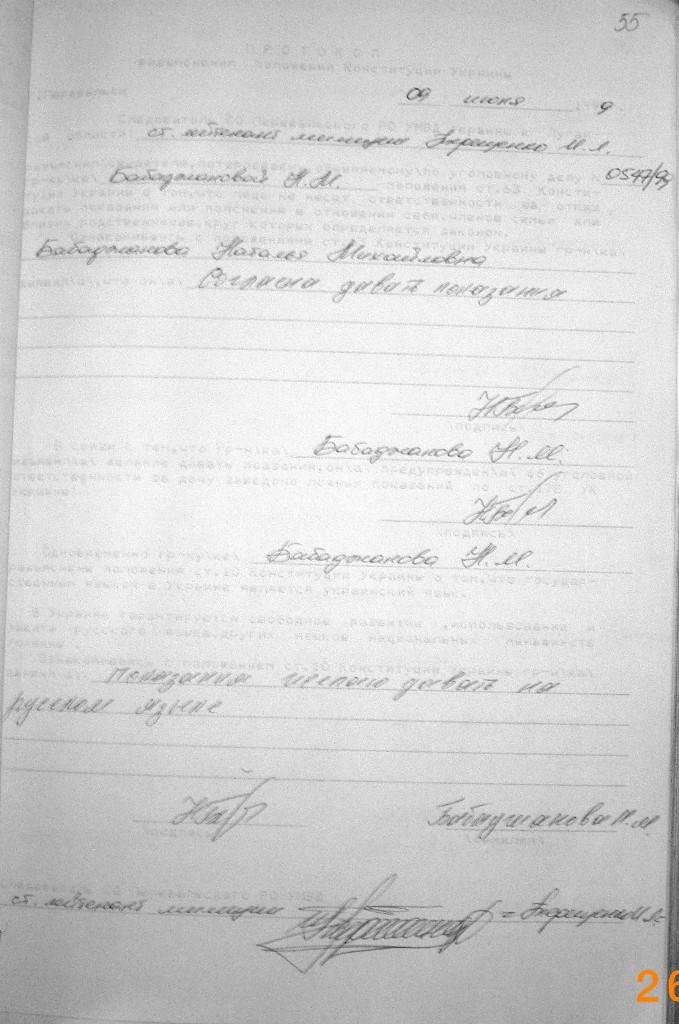 55
П Р О Т О К О Л
разъяснения положений Конституции Украины
г.Перевальск 09 июня 199 9
Следователь СО Перевальского РО УМВД Украины в Луган-
ской области ст. лейтенант милиции И.А.
разъяснил свидетелю, потерпевшему, обвиняемому\по уголовному делу N
гр-ну\ке\ Бабаджановой Н.М. положения ст.63 Консти- 0547/99
туции Украины о том,что лицо не несет ответственности за отказ
давать показания или пояснения в отношении себя,членов семьи или
близких родственников,круг которых определяется законом.
Ознакомившись с положениями ст.63 Конституции Украины гр-н\ка\
Бабаджанова Наталья Михайловна
заявил\а\,что он\а\ Согласна давать показания
\подпись\
В связи с тем,что гр-н\ка\ Бабаджанова Н.М.
изъявил\а\ желание давать показания,он\а\ предупрежден\а\ об уголовной
ответственности за дачу заведомо ложных показаний по ст.178 УК
Украины
\подпись\
Одновременно гр-ну\ке\ Бабаджанова Н.М.
разъяснены положения ст.10 Конституции Украины о том,что государ-
ственным языком в Украине является украинский язык.
В Украине гарантируется свободное развитие ,использование и
защита русского языка,других языков национальных меньшинств
Украины .
Ознакомившись с положением ст.10 Конституции Украины гр-н\ка\
заявил\а\: Показания желаю давать на
русском языке
Бабаджанова Н.М.
\подпись\ \фамилия\
Следователь СО Перевальского РО УМВД
ст. лейтенант милиции
26